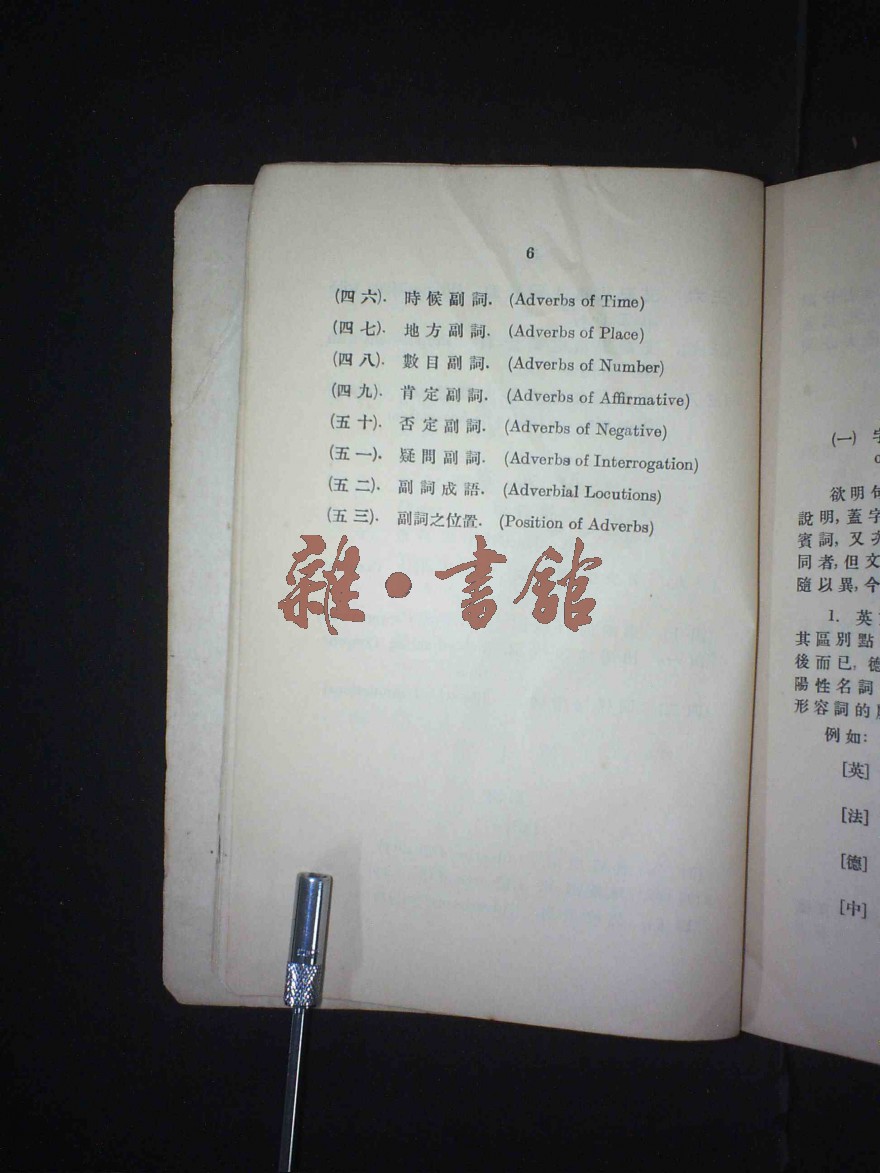 6
(四六). 時候副詞. (Adverbs of Time)
(四七). 地方副詞. (Adverbs of Place)
(四八). 數目副詞. (Adverbs of Number)
(四九). 肯定副詞. (Adverbs of Affirmative)
(五十). 否定副詞. (Adverbs of Negative)
(五一). 疑問副詞. (Adverbs of Interrogation)
(五二). 副詞成語. (Adverbial Locutions)
(五三). 副詞之位置. (Position of Adverbs)
雜·書館
(一) 字
欲明句
說明, 蓋字
賓詞, 又
同者, 但文
隨以異, 今
1. 英
其區別點
後而已, 德
陽性名詞
形容詞的
例如:
[英]
[法]
[德]
[中]